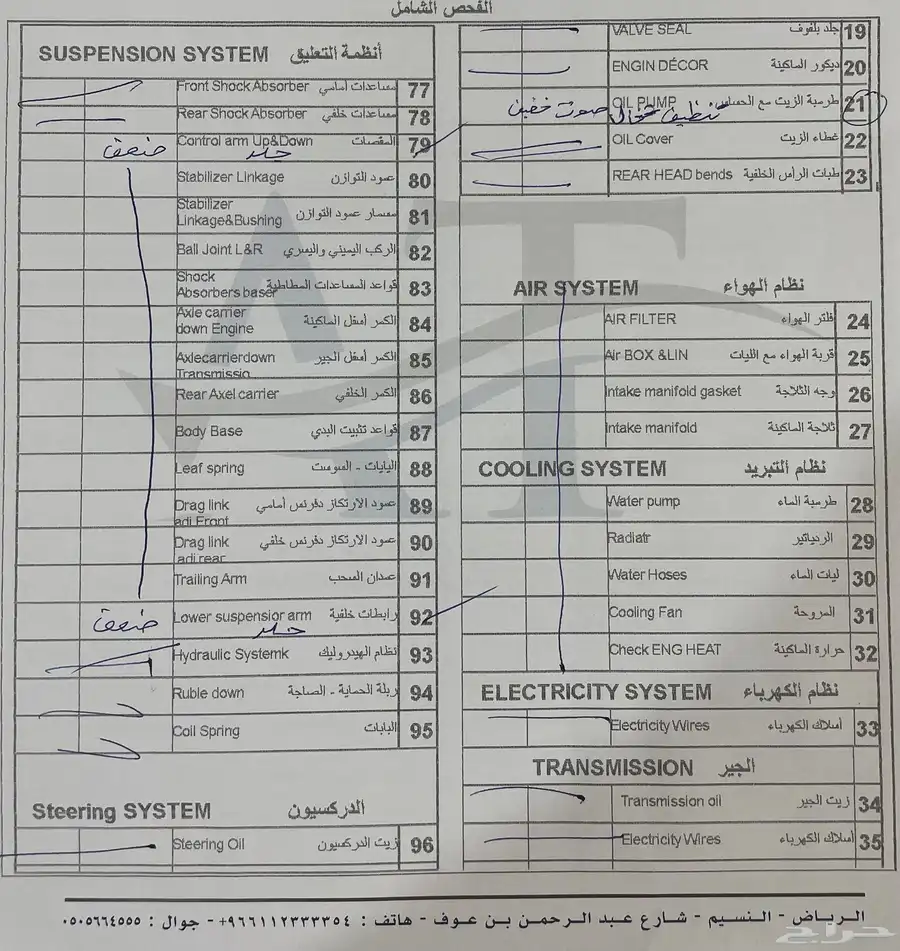 الفحص الشامل
SUSPENSION SYSTEM أنظمة التعليق
Front Shock Absorber مساعدات اساسي 77
Rear Shock Absorber مساعدات خلفي 78
Control arm Up&Down المقصات 79
ضعف جلد
Stabilizer Linkage عمود التوازن 80
Stabilizer
Linkage&Bushing مسمار عمود التوازن 81
Ball Joint L&R الركب اليميني واليسري 82
Shock
Absorbers baser قواعد المساعدات المطاطية 83
Axle carrier
down Engine الكمر أسفل الماكينة 84
Axlecarrierdown
Transmissio الكمر أسفل الجير 85
Rear Axel carrier الكمر الخلفي 86
Body Base قواعد تثبيت البدي 87
Leaf spring اليايات - السوست 88
Drag link
adj Front عمود الارتكاز دفرنس أمامي 89
Drag link
adj rear عمود الارتكاز دفرنس خلفي 90
Trailing Arm عمدان السحب 91
Lower suspensior arm رابطات خلفية 92
ضعف جلد
Hydraulic Systemk نظام الهيدروليك 93
Ruble down ربلة الحماية - الصاجة 94
Coil Spring اليايات 95
Steering SYSTEM الدركسيون
Steering Oil زيت الدركسيون 96
VALVE SEAL جلد بلفوف 19
ENGIN DÉCOR ديكور الماكينة 20
OIL PUMP طرمبة الزيت مع الحساس 21
صوت خفيف تنظيف
OIL Cover غطاء الزيت 22
REAR HEAD bends طبات الرأس الخلفية 23
AIR SYSTEM نظام الهواء
AIR FILTER فلتر الهواء 24
Air BOX &LIN قربة الهواء مع الليات 25
Intake manifold gasket وجه الثلاجة 26
Intake manifold ثلاجة الماكينة 27
COOLING SYSTEM نظام التبريد
Water pump طرمبة الماء 28
Radiatr الرديتير 29
Water Hoses ليات الماء 30
Cooling Fan المروحة 31
Check ENG HEAT حرارة الماكينة 32
ELECTRICITY SYSTEM نظام الكهرباء
Electricity Wires أسلاك الكهرباء 33
TRANSMISSION الجير
Transmission oil زيت الجير 34
Electricity Wires أسلاك الكهرباء 35
الرياض - النسيم - شارع عبد الرحمن بن عوف - هاتف : ٩٦٦١١٢٣٣٣٣٥٤+ - جوال : ٠٥٠٥٦٦٤٥٥٥
حراج